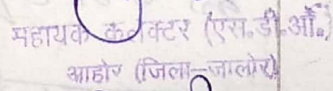 सहायक कलक्टर (एस.डी.ओ.)
आहोर (जिला-जालोर)